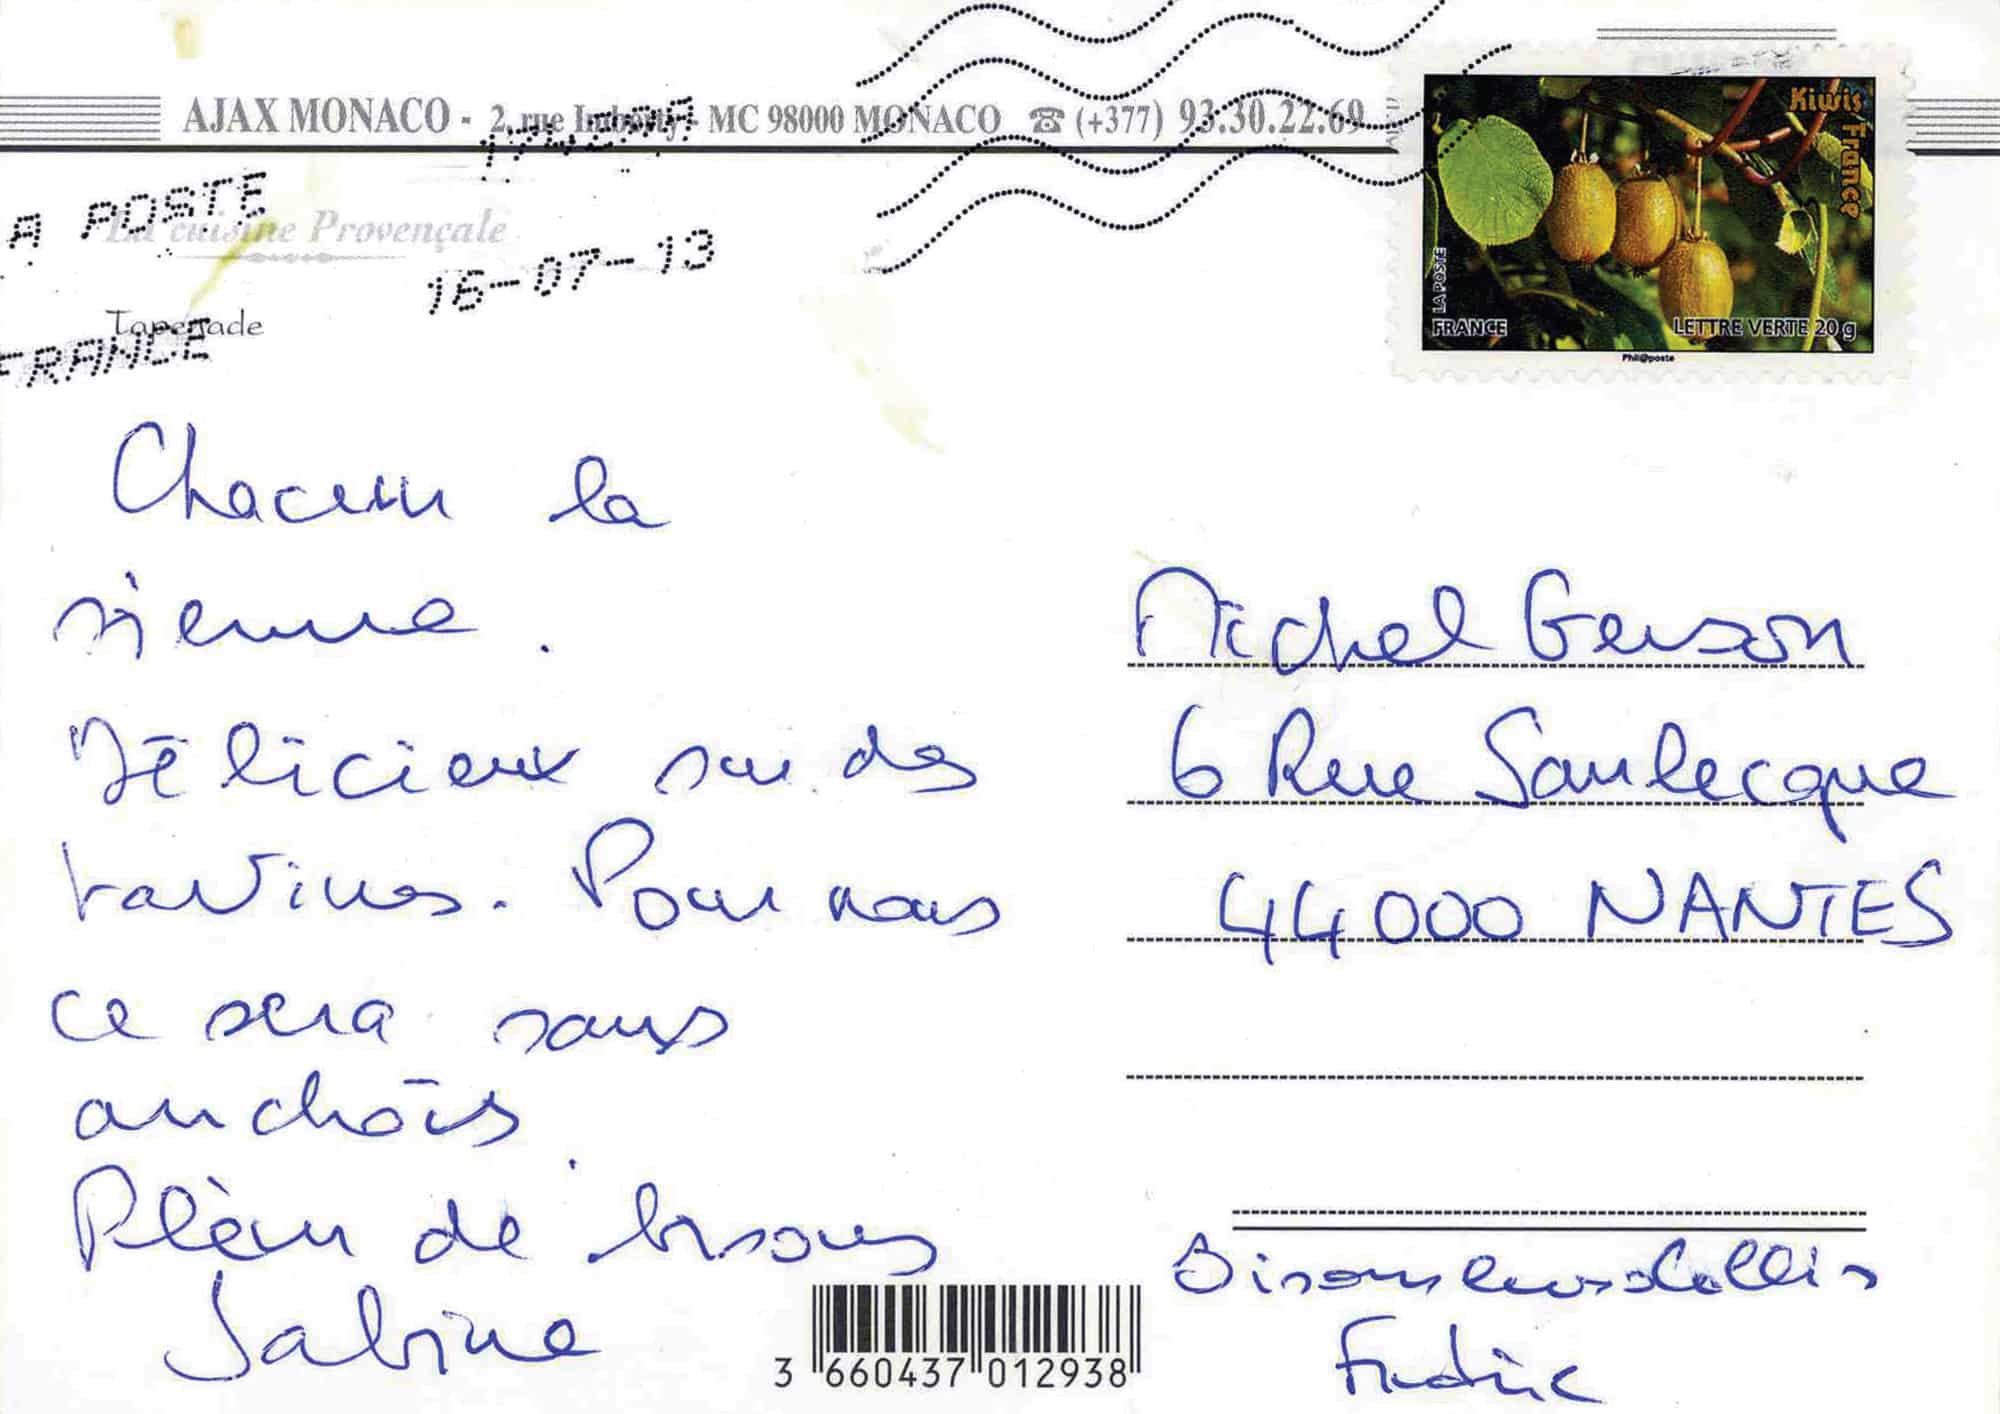 AJAX MONACO - 2, rue Imberty - MC 98000 MONACO ☎ (+377) 93.30.22.69
17428A
A POSTE
La cuisine Provençale
16-07-13
Tapenade
FRANCE
Kiwis France
LA POSTE
FRANCE
LETTRE VERTE 20 g
Phil@poste
Chacun la
sienne.
Délicieux sur des
tartines. Pour nous
ce sera sans
anchois.
Plein de bisous
Sabine
Michel Gerson
6 Rue Saulecque
44000 NANTES
Frédéric
3 660437 012938